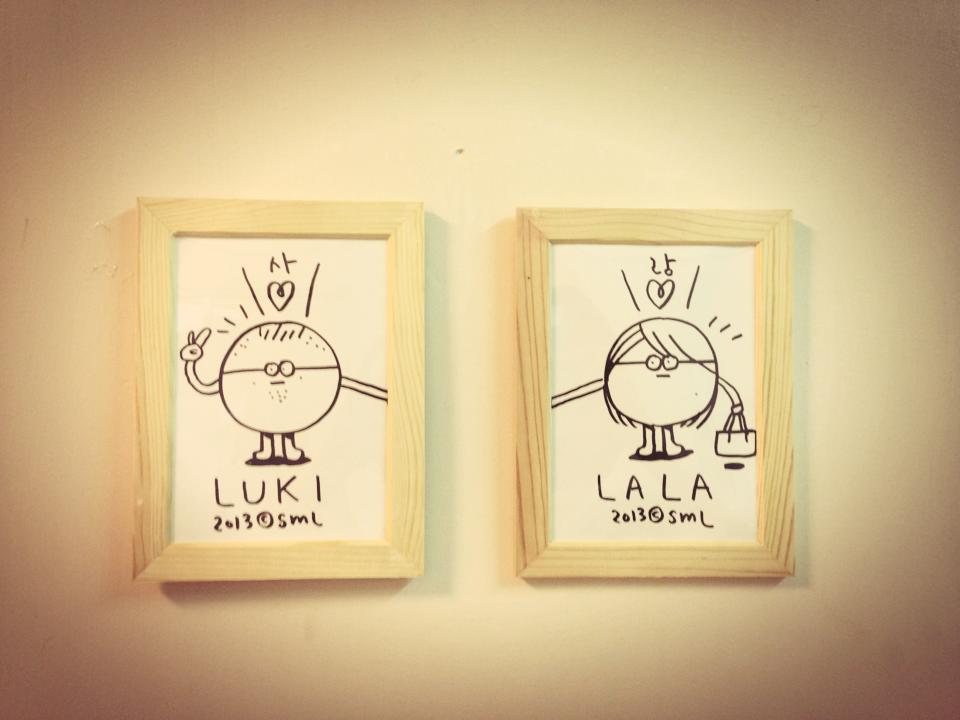 사
LUKI
2013©SML
랑
LALA
2013©SML